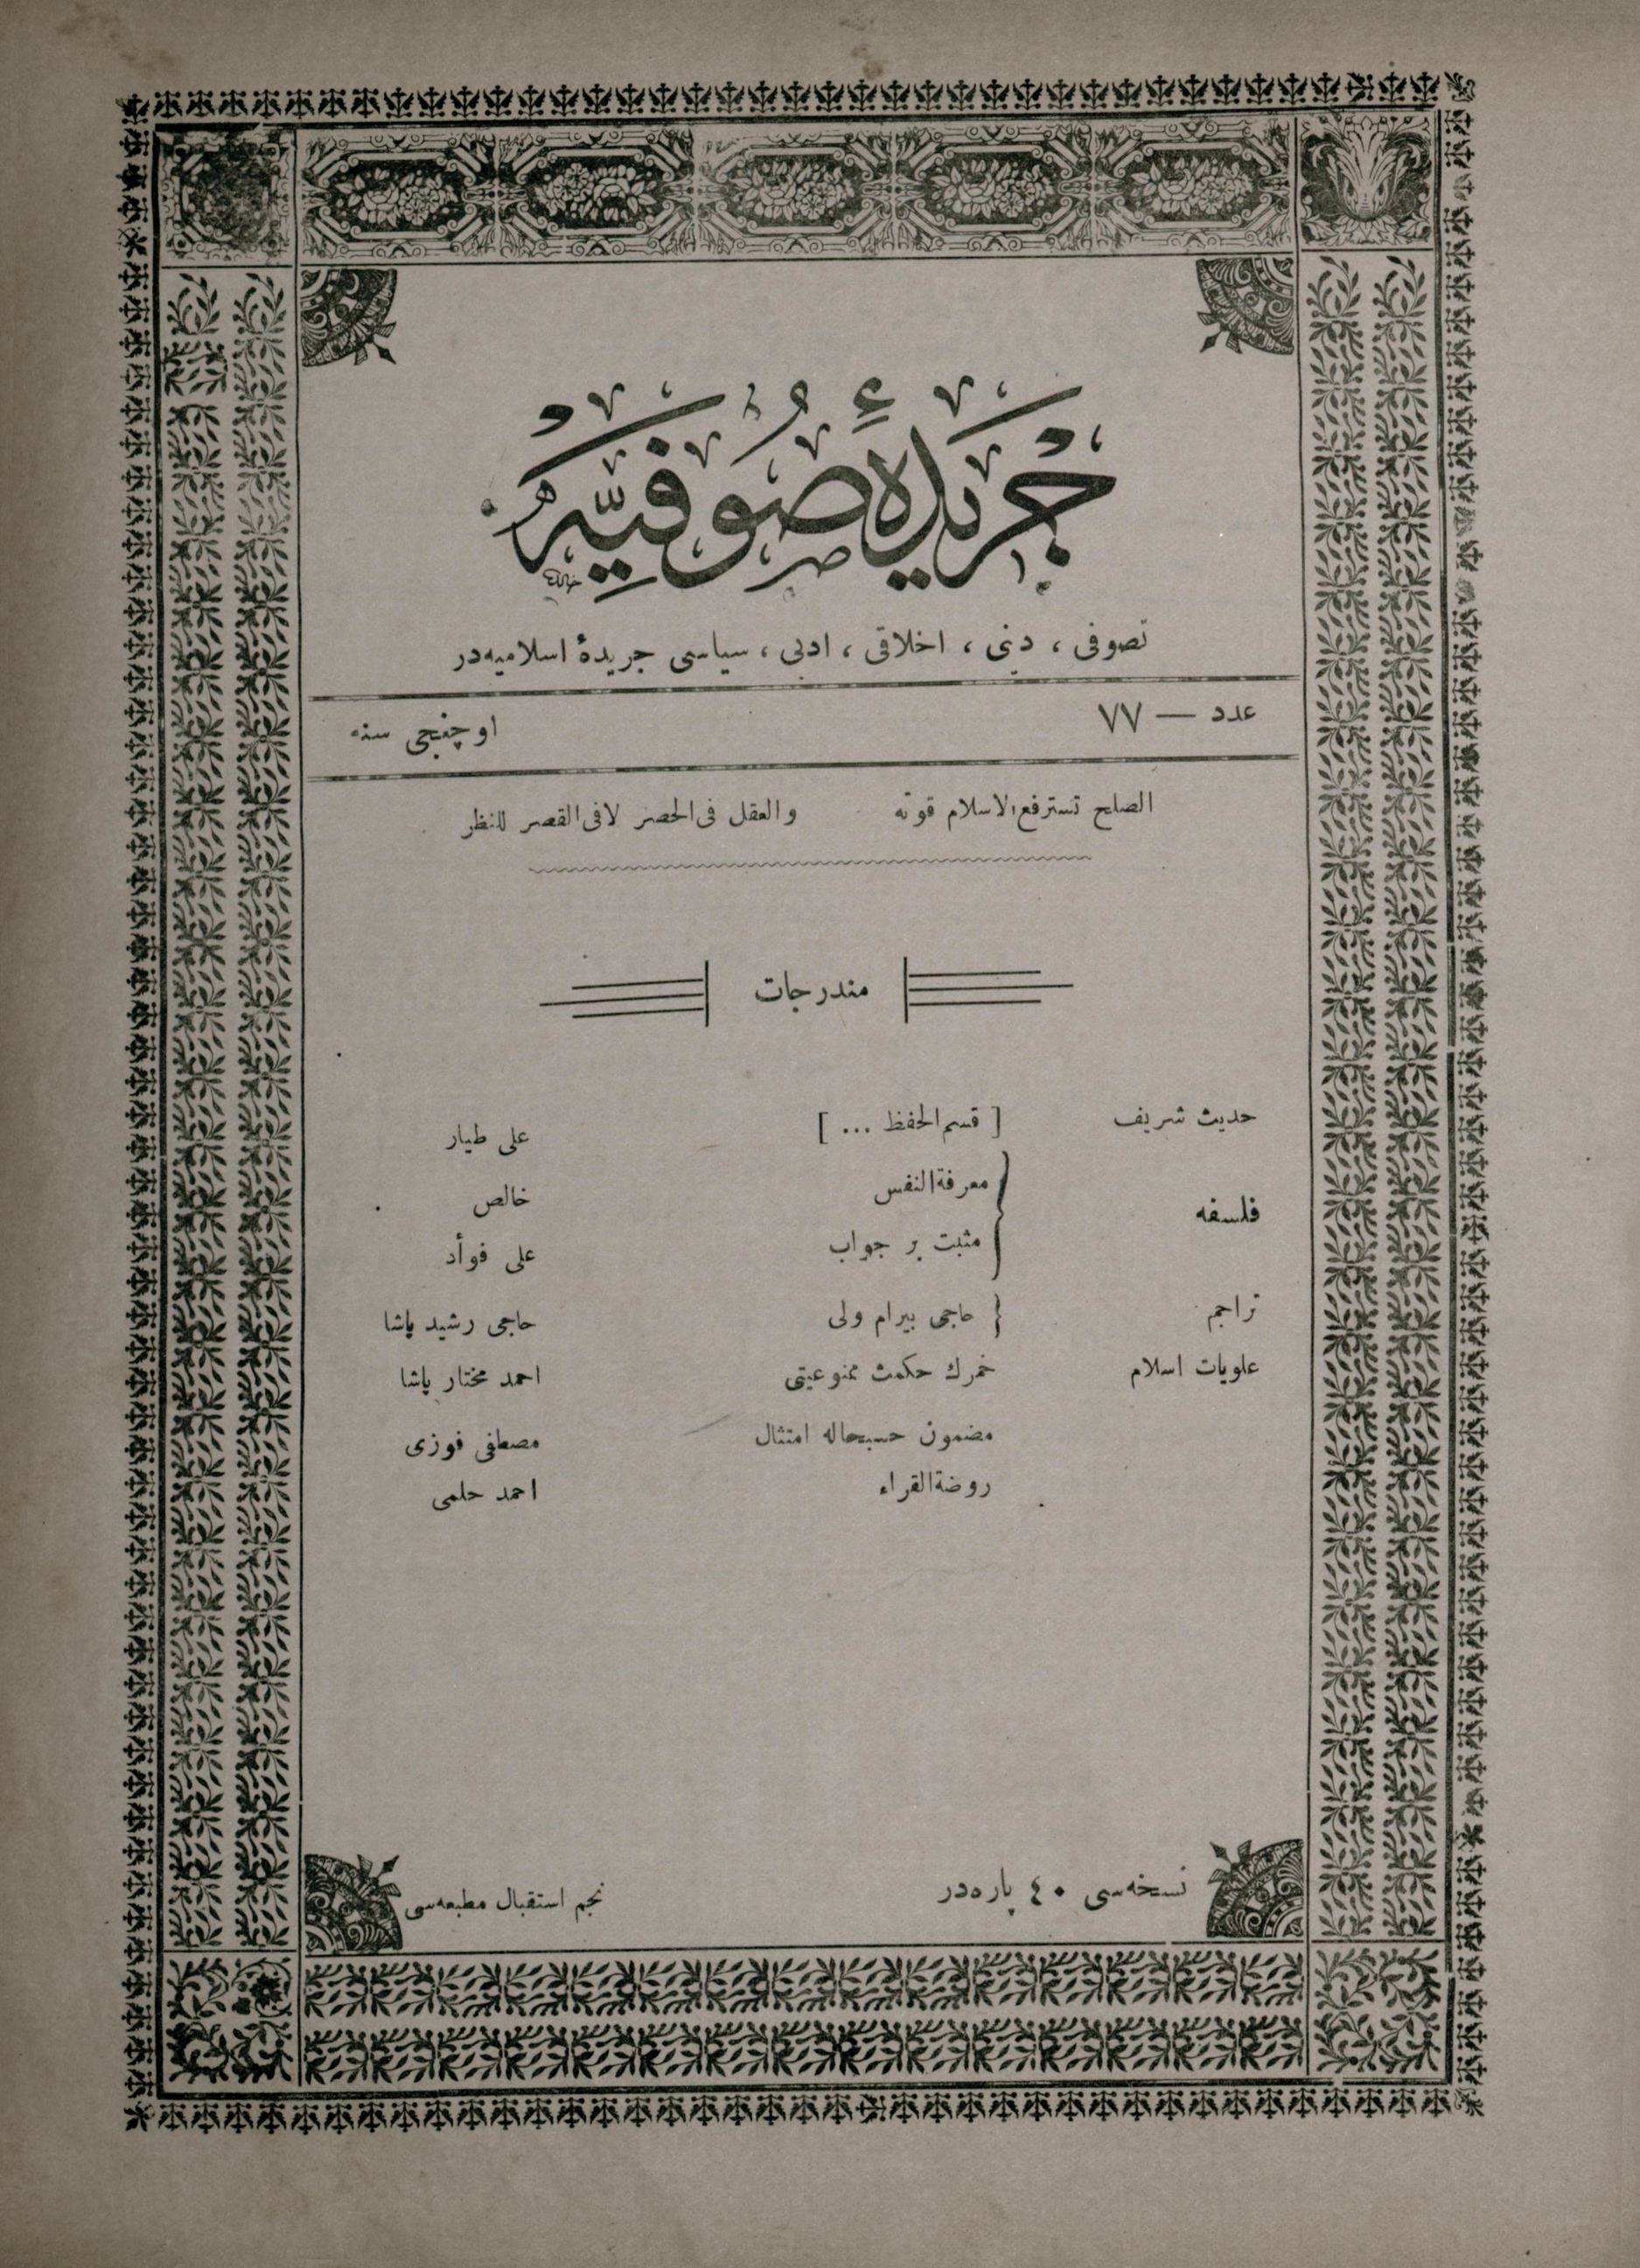 جريدۀ صوفيه
تصوفى ، دينى ، اخلاقى ، ادبى ، سياسى جريدۀ اسلاميه‌در
عدد — ٧٧ اوچنجى سنه
الصلح تسترفع الاسلام قوته والعقل فى الحصر لا فى القصر للنظر
مندرجات
حديث شريف [ قسم الحفظ ... ] على طيار
فلسفه
معرفة النفس خالص
مثبت بر جواب على فوأد
تراجم حاجى بيرام ولى حاجى رشيد پاشا
علويات اسلام خمرك حكمت ممنوعيتى احمد مختار پاشا
مضمون حسبحاله امتثال مصطفى فوزى
روضة القراء احمد حلمى
نسخه‌سى ٤٠ پاره‌در نجم استقبال مطبعه‌سى